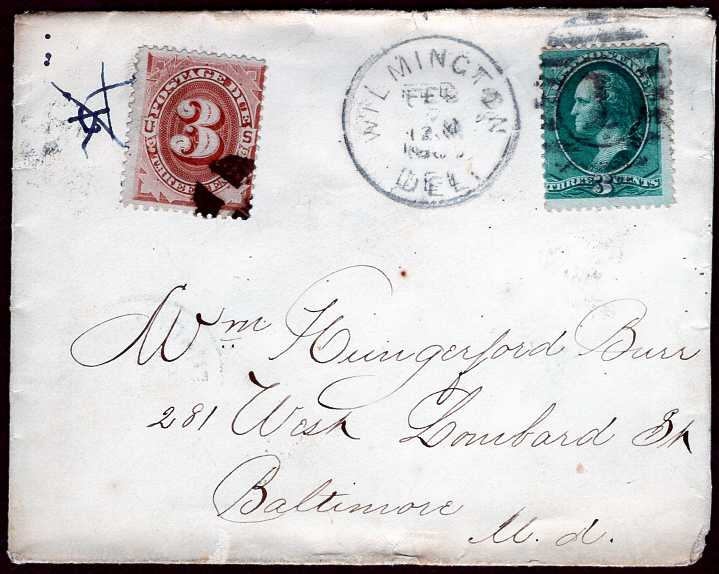 POSTAGE DUE
3
THREE
WILMINGTON
FEB
DEL.
POSTAGE
THREE 3 CENTS
Wm Hungerford Burr
281 West Lombard St
Baltimore
M. d.